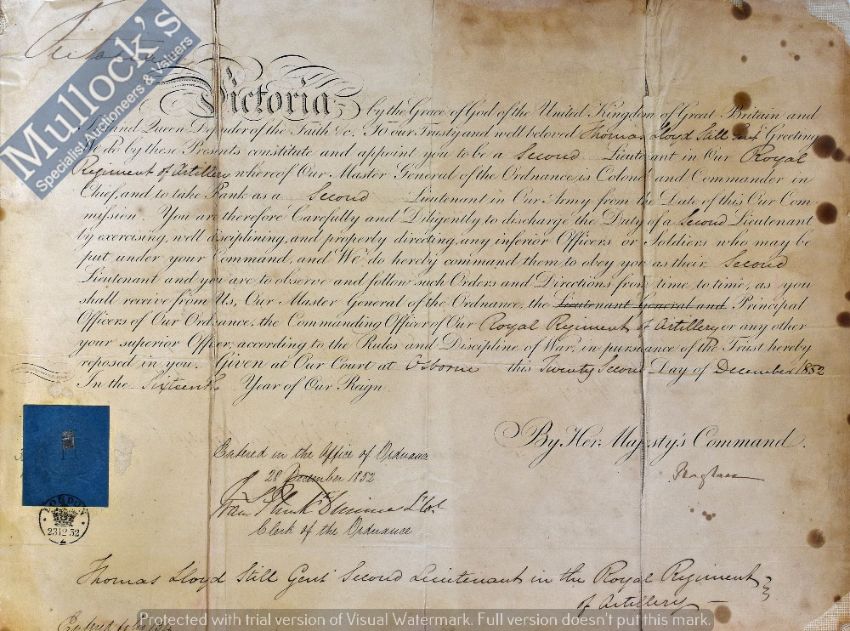 Mullock's
Specialist Auctioneers & Valuers
Victoria
Victoria by the Grace of God of the United Kingdom of Great Britain and
Ireland Queen Defender of the Faith &c. To our Trusty and well beloved Thomas Lloyd Still Gent Greeting
We do by these Presents constitute and appoint you to be a Second Lieutenant in Our Royal
Regiment of Artillery whereof Our Master General of the Ordnance, is Colonel and Commander in
Chief, and to take Rank as a Second Lieutenant in Our Army from the Date of this Our Com
mission. You are therefore Carefully and Diligently to discharge the Duty of a Second Lieutenant
by exercising, well disciplining, and properly directing, any inferior Officers or Soldiers who may be
put under your Command, and We do hereby command them to obey you as their Second
Lieutenant and you are to observe and follow such Orders and Directions from time to time, as you
shall receive from Us, Our Master General of the Ordnance, the Lieutenant General and Principal
Officers of Our Ordnance, the Commanding Officer of Our Royal Regiment of Artillery, or any other
your superior Officer, according to the Rules and Discipline of War, in pursuance of the Trust hereby
reposed in you. Given at Our Court at Osborne this Twenty Second Day of December 1852
In the Sixteenth Year of Our Reign.
By Her Majesty's Command.
Raglan
Entered in the Office of Ordnance
28 December 1852
Lt Col
Clerk of the Ordnance
LONDON
23 12 52
2
Thomas Lloyd Still Gent Second Lieutenant in the Royal Regiment
of Artillery
Protected with trial version of Visual Watermark. Full version doesn't put this mark.